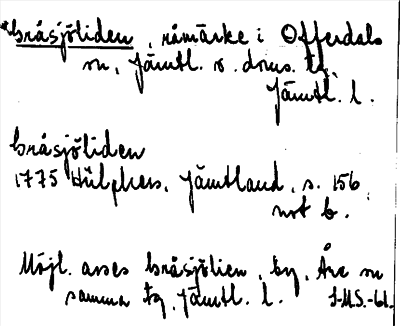 *bråsjöliden, råmärke i Offerdals
sn, Jämtl. v. doms. tg,
Jämtl. l.
bråsjöliden
1775 Hülphers, Jämtland, s. 156,
not b.
Möjl. avses bråsjölien, by, Åre sn
samma tg, Jämtl. l. J.M.S.-61.